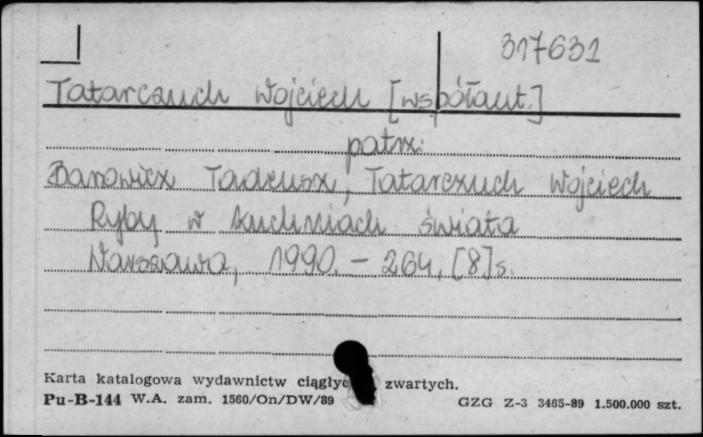 317631
Tatarczuch Wojciech [współaut.]
patrz:
Barowicz Tadeusz, Tatarczuch Wojciech
Ryby w kuchniach świata
Warszawa, 1990. - 264, [8] s.
Karta katalogowa wydawnictw zwartych.
Pu-B-144 W.A. zam. 1560/On/DW/89 GZG Z-3 3465-89 1.500.000 szt.